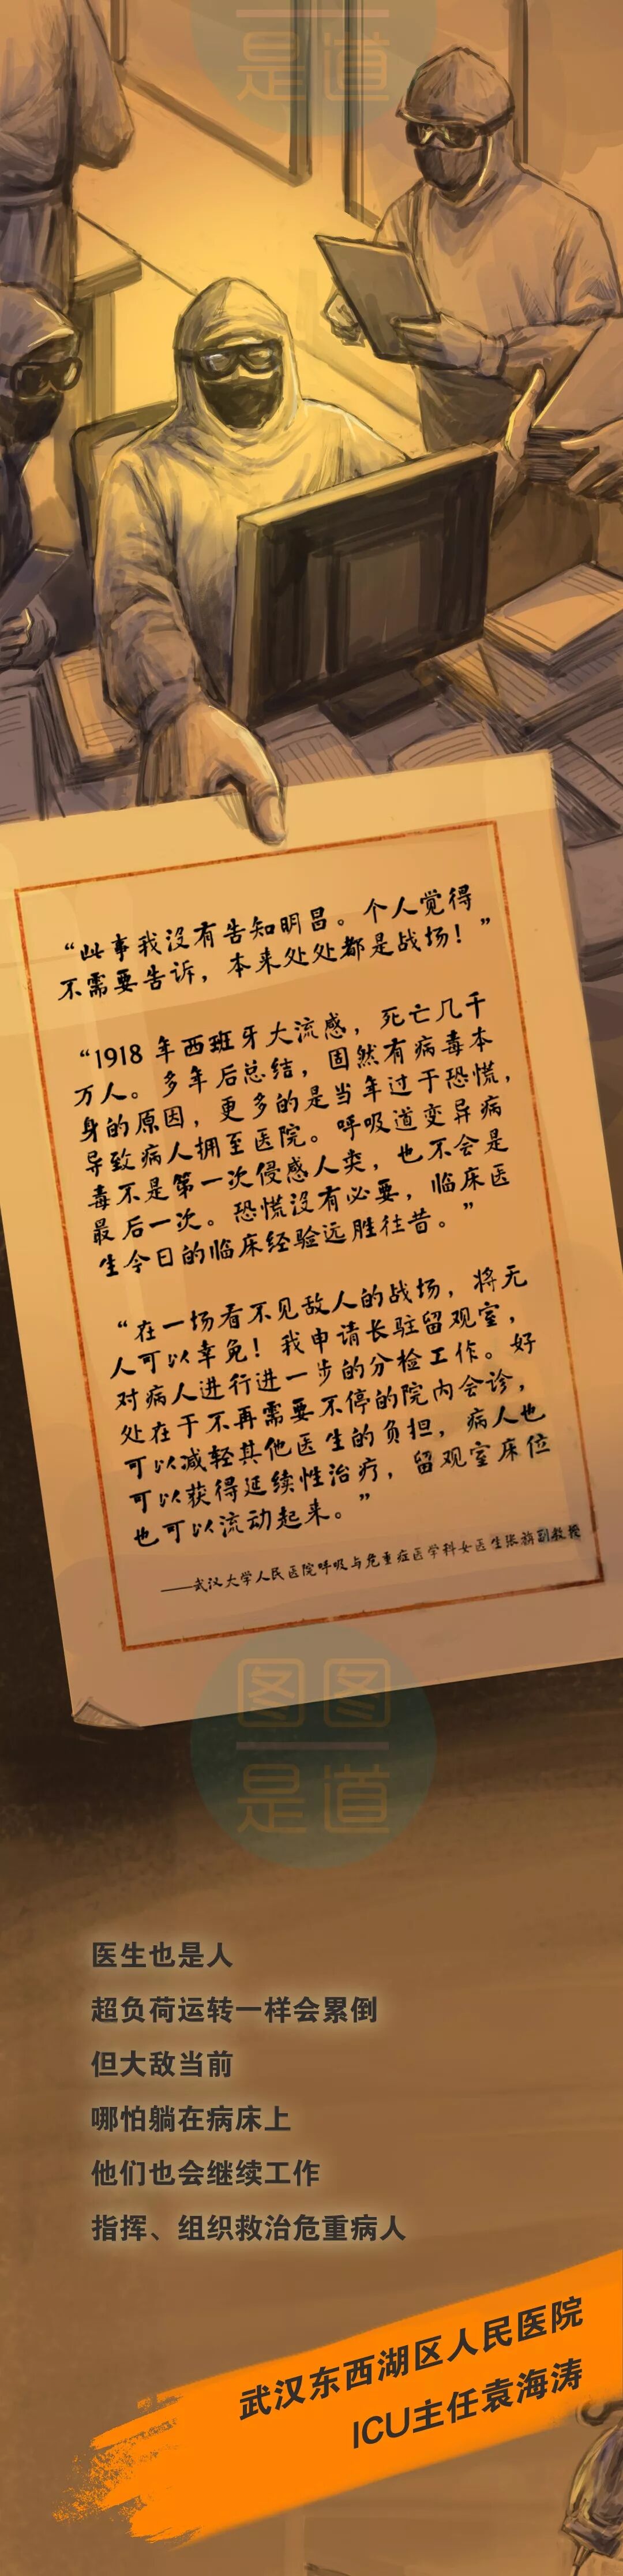 是道
“此事我没有告知明昌。个人觉得
不需要告诉，本来处处都是战场！”
“1918 年西班牙大流感，死亡几千
万人。多年后总结，固然有病毒本
身的原因，更多的是当年过于恐慌，
导致病人拥至医院。呼吸道变异病
毒不是第一次侵感人类，也不会是
最后一次。恐慌没有必要，临床医
生今日的临床经验远胜往昔。”
“在一场看不见敌人的战场，将无
人可以幸免！我申请长驻留观室，
对病人进行进一步的分检工作。好
处在于不再需要不停的院内会诊，
可以减轻其他医生的负担，病人也
可以获得延续性治疗，留观室床位
也可以流动起来。”
——武汉大学人民医院呼吸与危重症医学科女医生张旃副教授
图图
是道
医生也是人
超负荷运转一样会累倒
但大敌当前
哪怕躺在病床上
他们也会继续工作
指挥、组织救治危重病人
武汉东西湖区人民医院
ICU主任袁海涛